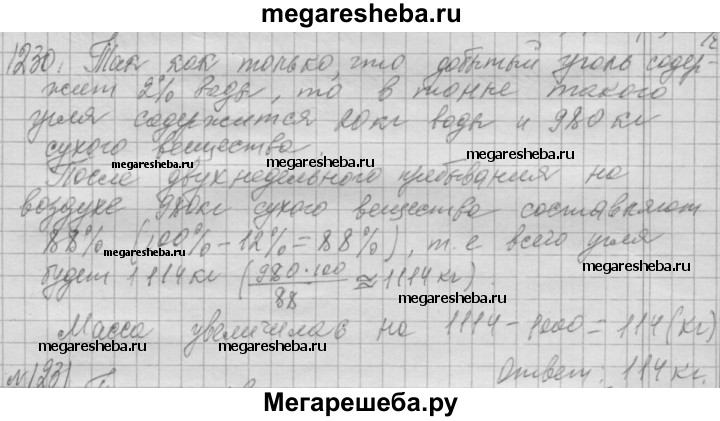 megaresheba.ru
1230. Так как только, что добытый уголь содер-
жит 2% воды, то в тонне такого
угля содержится 20 кг воды и 980 кг
сухого вещества.
megaresheba.ru megaresheba.ru
После двухнедельного пребывания на
воздухе 980кг сухого вещества составляют
88% (100% - 12% = 88%), т.е всего угля
megaresheba.ru megaresheba.ru
будет 1114кг (980·100/88 ≈ 1114 кг).
Масса увеличилась на 1114 - 1000 = 114 (кг)
megaresheba.ru megaresheba.ru
Ответ: 114 кг.
№1231
Мегарешеба.ру